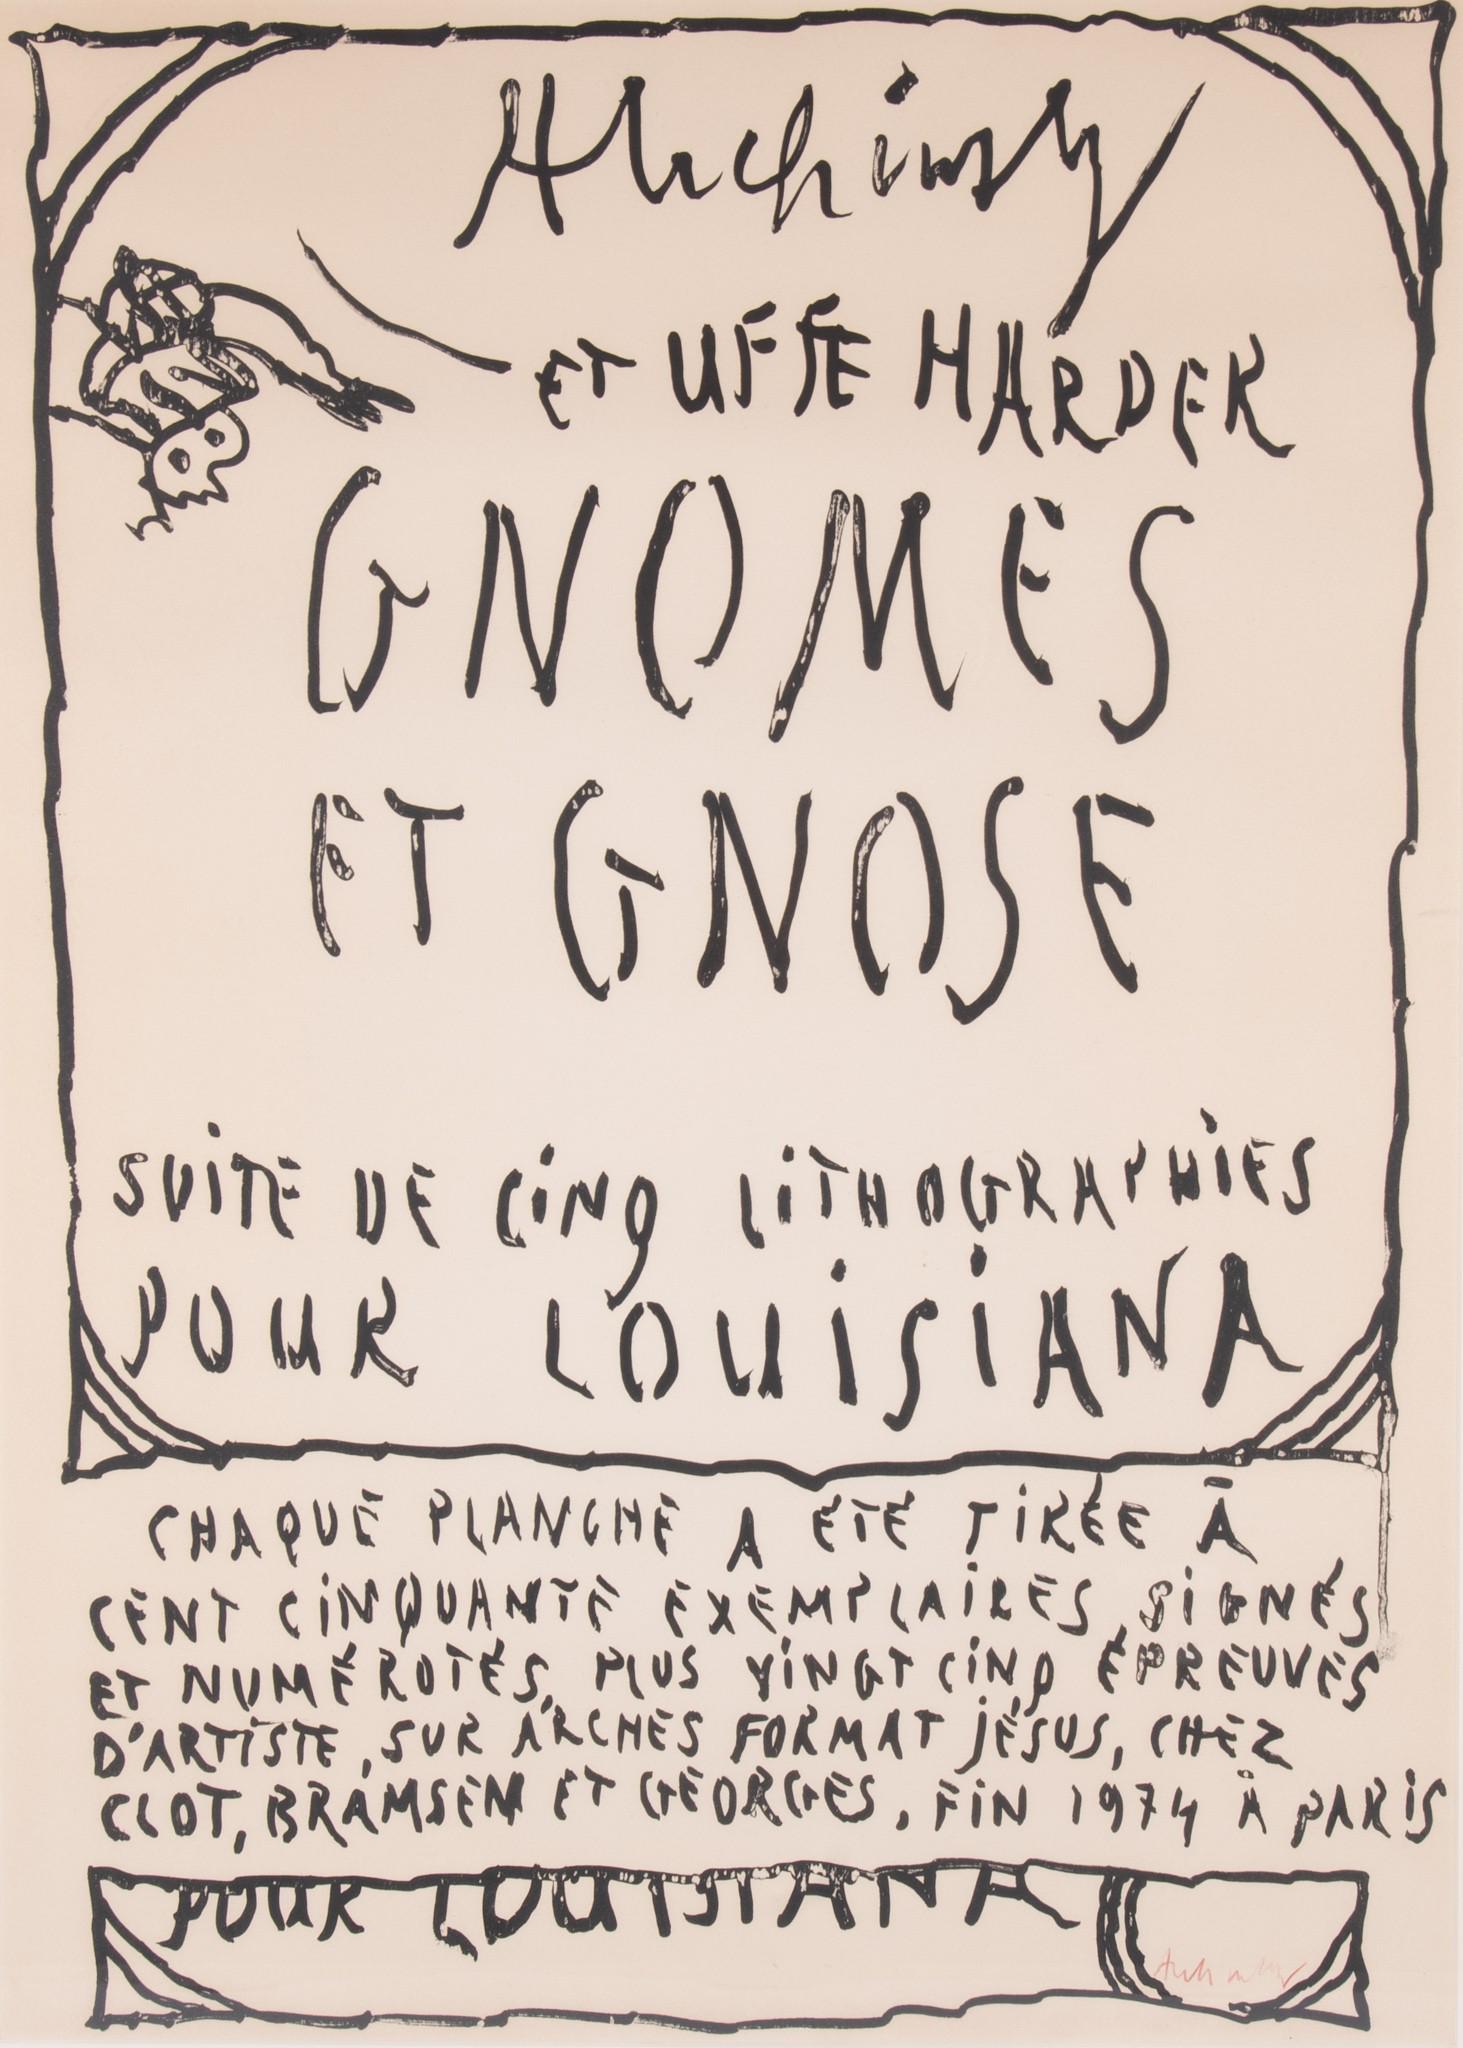 Alechinsky
ET UFFE HARDER
GNOMES
ET GNOSE
SUITE DE CINQ LITHOGRAPHIES
POUR LOUISIANA
CHAQUE PLANCHE A ÉTÉ TIRÉE À
CENT CINQUANTE EXEMPLAIRES SIGNÉS
ET NUMÉROTÉS, PLUS VINGT CINQ ÉPREUVES
D'ARTISTE, SUR ARCHES FORMAT JÉSUS, CHEZ
CLOT, BRAMSEN ET GEORGES, FIN 1974 À PARIS
POUR LOUISIANA